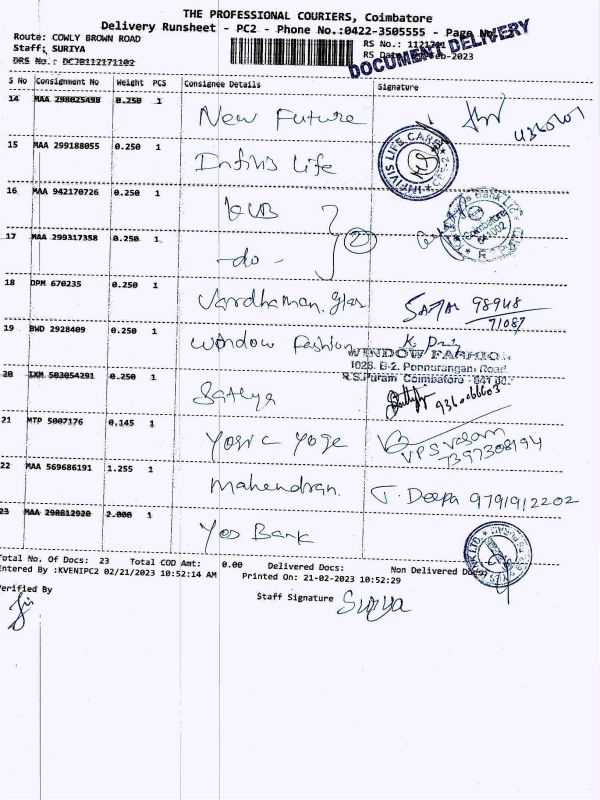 THE PROFESSIONAL COURIERS, Coimbatore
Delivery Runsheet - PC2 - Phone No.:0422-3505555 - Page No
Route: COWLY BROWN ROAD
RS No.:
Staff: SURIYA
DOCUMENT DELIVERY
DRS No.: DCJB112171102
S No Consignment No Weight PCS Consignee Details Signature
14 MAA 298025498 0.250 1 New Future
15 MAA 299188055 0.250 1 Infivis Life
INFIVIS LIFE CARE
16 MAA 942170726 0.250 1 KVB
17 MAA 299317358 0.250 1 -do- 2
18 DPM 670235 0.250 1 Vardhaman. glas
98948
71087
19 BWD 2928409 0.250 1 Window Fashion
WINDOW FASHION
1026, B-2, Ponnurangam Road,
R.S.Puram Coimbatore - 641 00
20 IXM 503054291 0.250 1 Sathya
9360066603
21 MTP 5007176 0.145 1 Yogic Yoge
VPS Vasam
7397308194
22 MAA 569686191 1.255 1 Mahendran.
T. Deepa 9791912202
23 MAA 298812920 2.000 1 Yes Bank
Total No. Of Docs: 23 Total COD Amt: 0.00 Delivered Docs: Non Delivered Docs:
Entered By :KVENIPC2 02/21/2023 10:52:14 AM Printed On: 21-02-2023 10:52:29
Verified By
Staff Signature Suriya